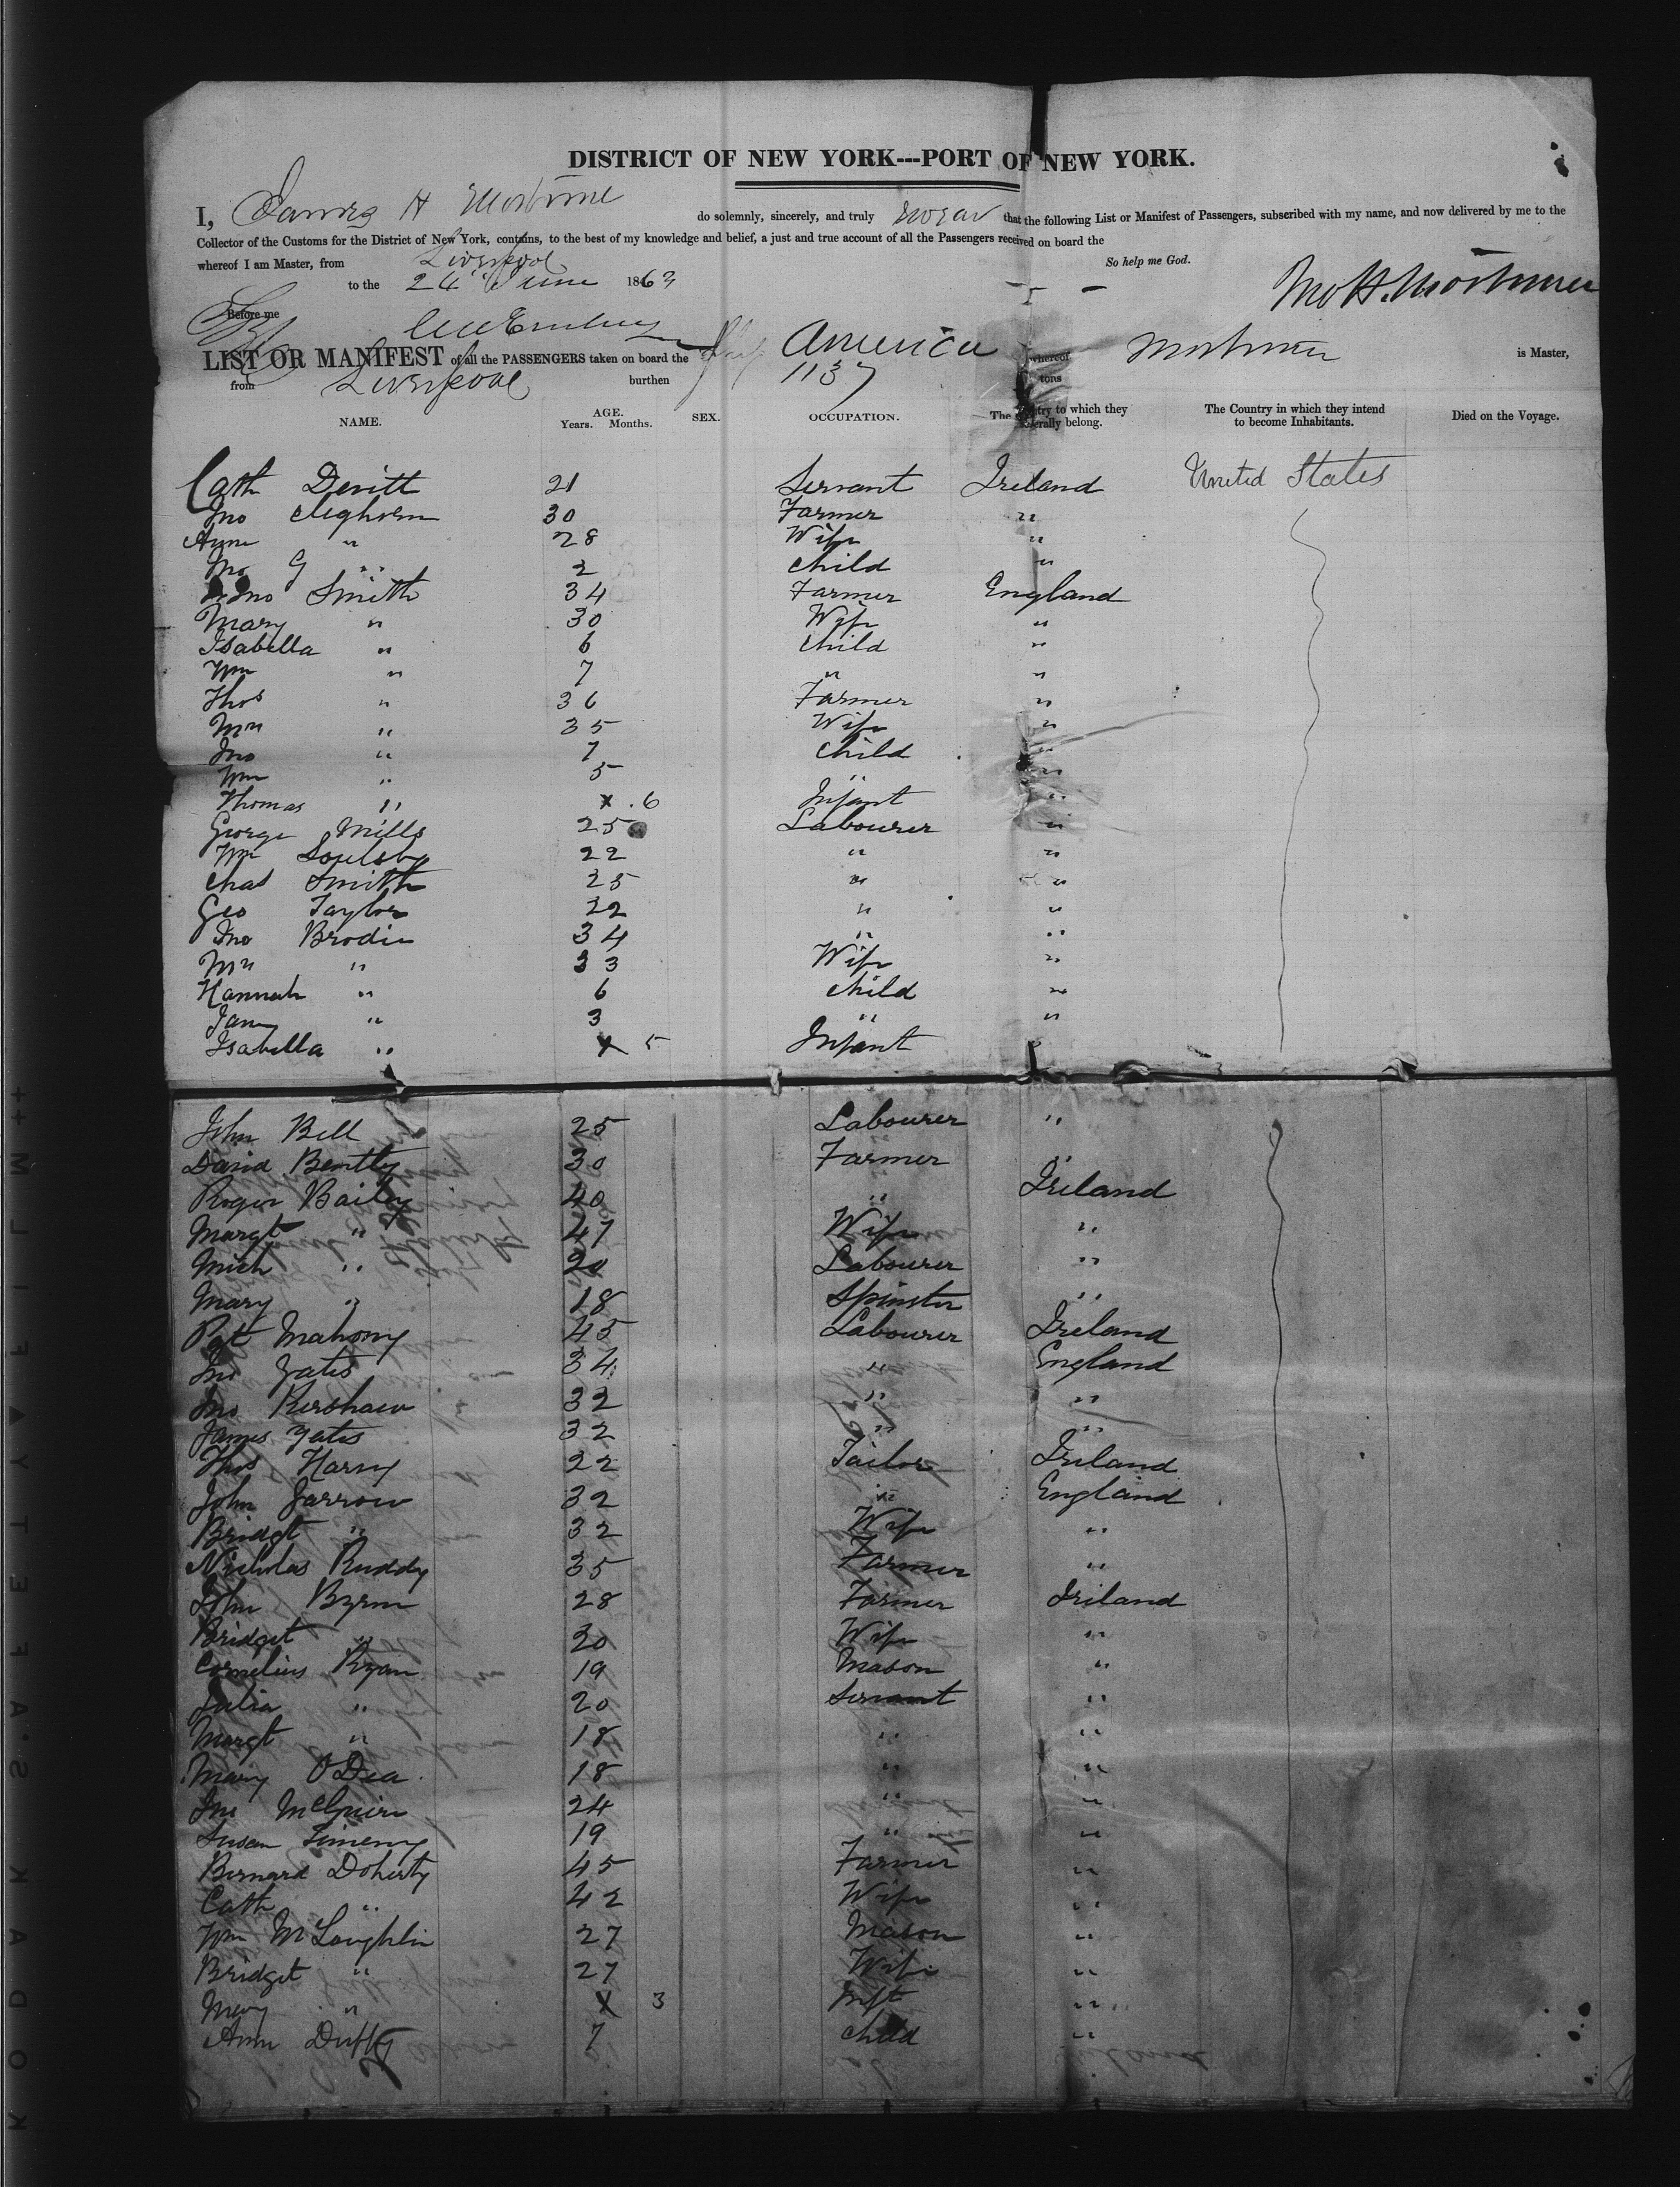 DISTRICT OF NEW YORK---PORT OF NEW YORK.
I, James H do solemnly, sincerely, and truly swear that the following List or Manifest of Passengers, subscribed with my name, and now delivered by me to the
Collector of the Customs for the District of New York, contains, to the best of my knowledge and belief, a just and true account of all the Passengers received on board the
whereof I am Master, from Liverpool So help me God.
to the 24 June 1863
Before me
LIST OR MANIFEST of all the PASSENGERS taken on board the Ship America whereof is Master,
from Liverpool burthen 1137 tons
NAME. AGE. Years. Months. SEX. OCCUPATION. The Country to which they severally belong. The Country in which they intend to become Inhabitants. Died on the Voyage.
Cath Devitt 21 Servant Ireland United States
Jno Cleghorn 30 Farmer "
Ann " 28 Wife "
Jno G " 2 child "
Jno Smith 34 Farmer England
Mary " 30 Wife "
Isabella " 6 child "
Wm " 7 " "
Thos " 36 Farmer "
Mrs " 35 Wife "
Jno " 7 child "
Wm " 5 " "
Thomas " x . 6 Infant "
George Mills 25 Labourer "
Wm Soulsby 22 " "
Chas Smith 25 " "
Geo Taylor 22 " "
Jno Brodie 34 " "
Mrs " 33 Wife "
Hannah " 6 child "
Jane " 3 " "
Isabella " x 5 Infant "
John Bell 25 Labourer "
David Bently 30 Farmer "
Roger Bailey 40 " Ireland
Margt " 47 Wife "
Mich " 20 Labourer "
Mary " 18 Spinster "
Pat Mahony 45 Labourer Ireland
Jno Yates 34 " England
Jno Kershaw 32 " "
James Yates 32 " "
Thos Harvy 22 Tailor Ireland
John Jarrow 32 " England
Bridgt " 32 Wife "
Nicholas Ruddy 35 Farmer "
John Byrne 28 Farmer Ireland
Bridget " 30 Wife "
Cornelius Ryan 19 Mason "
Julia " 20 Servant "
Margt " 18 " "
Mary O'Dea 18 " "
Jno McGuire 24 " "
Susan 19 " "
Bernard Doherty 45 Farmer "
Cath " 42 Wife "
Wm McLoughlin 27 Mason "
Bridget " 27 Wife "
Mary " x 3 Inft "
Ann Duffy 7 child "
KODAK SAFETY FILM